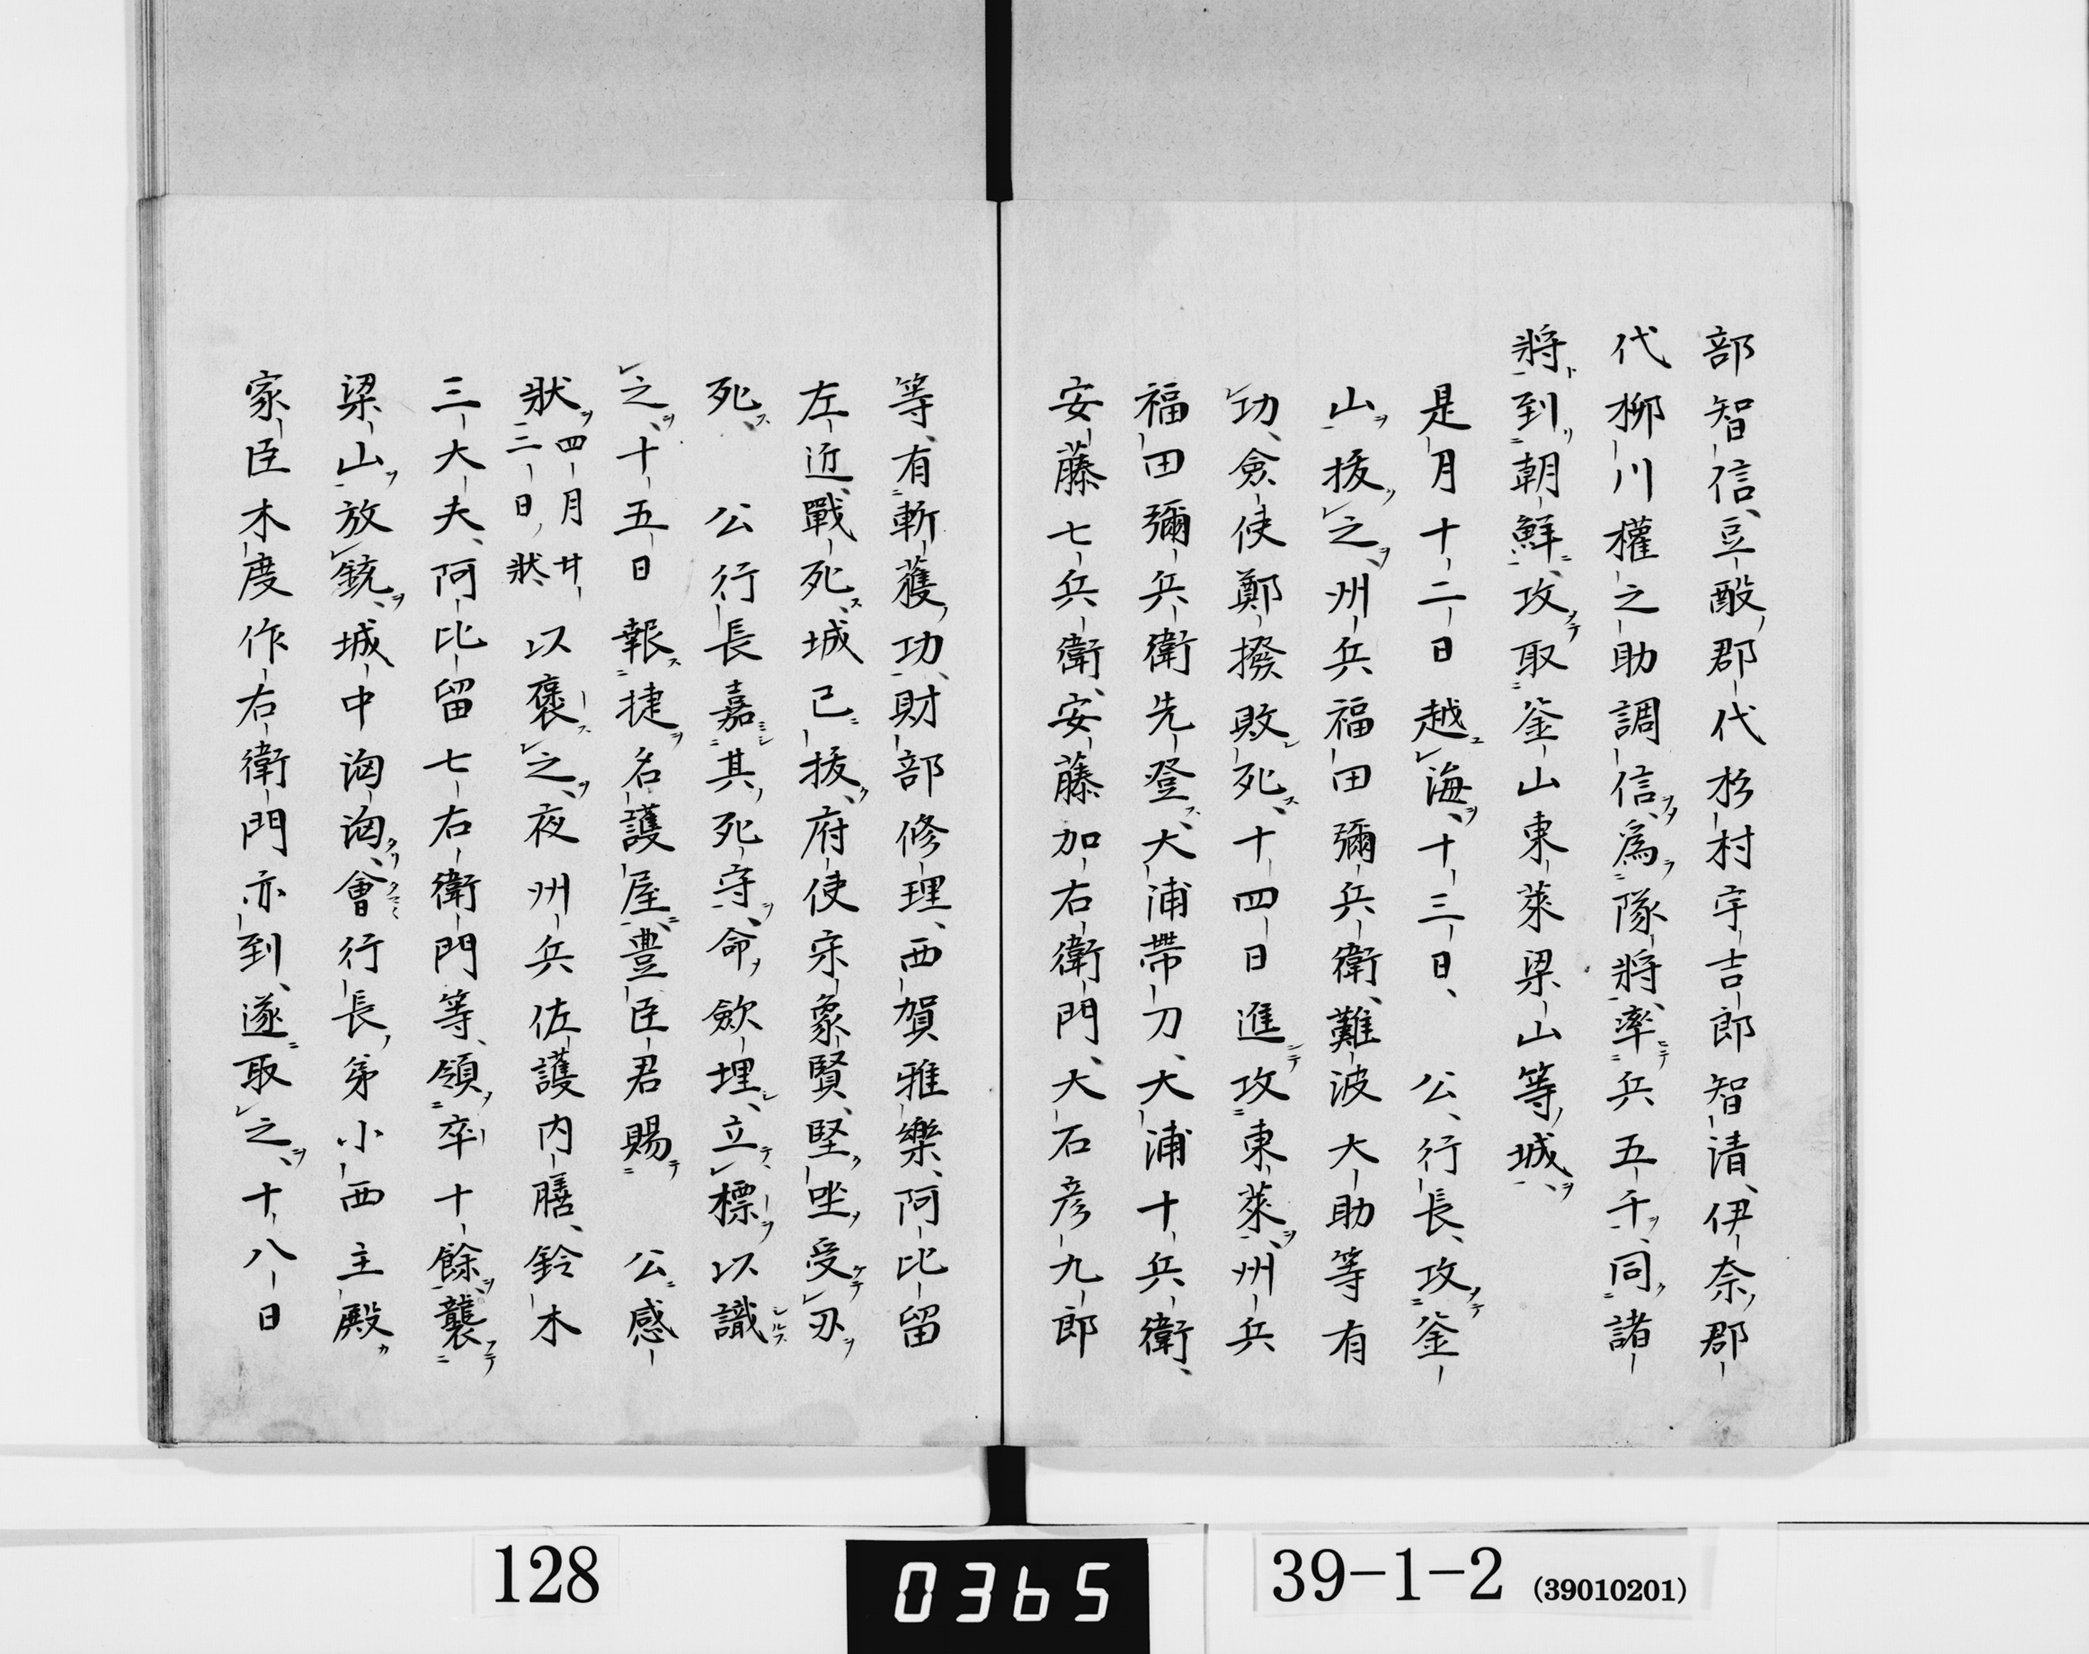 部智信、豆酘郡代杉村宇吉郎智清、伊奈郡
代柳川權之助調信、為隊將、率兵五千、同諸
將到朝鮮、攻取釜山東萊梁山等城、
是月十二日越海、十三日、公、行長、攻釜
山拔之、州兵福田彌兵衛、難波大助等有
功、僉使鄭撥敗死、十四日進攻東萊、州兵
福田彌兵衛先登、大浦帶刀、大浦十兵衛、
安藤七兵衛、安藤加右衛門、大石彦九郎
等、有斬獲功、財部修理、西賀雅樂、阿比留
左近、戰死、城已拔、府使宋象賢、堅坐受刃
死、公行長嘉其死守、命歛埋、立標以識
之、十五日報捷名護屋、豊臣君賜公感
狀四月廿三日狀、以褒之、夜州兵佐護内膳、鈴木
三大夫、阿比留七右衛門等、領卒十餘襲
梁山放銃、城中洶洶、會行長弟小西主殿
家臣木度作右衛門亦到、遂取之、十八日
128
0365
39-1-2 (39010201)